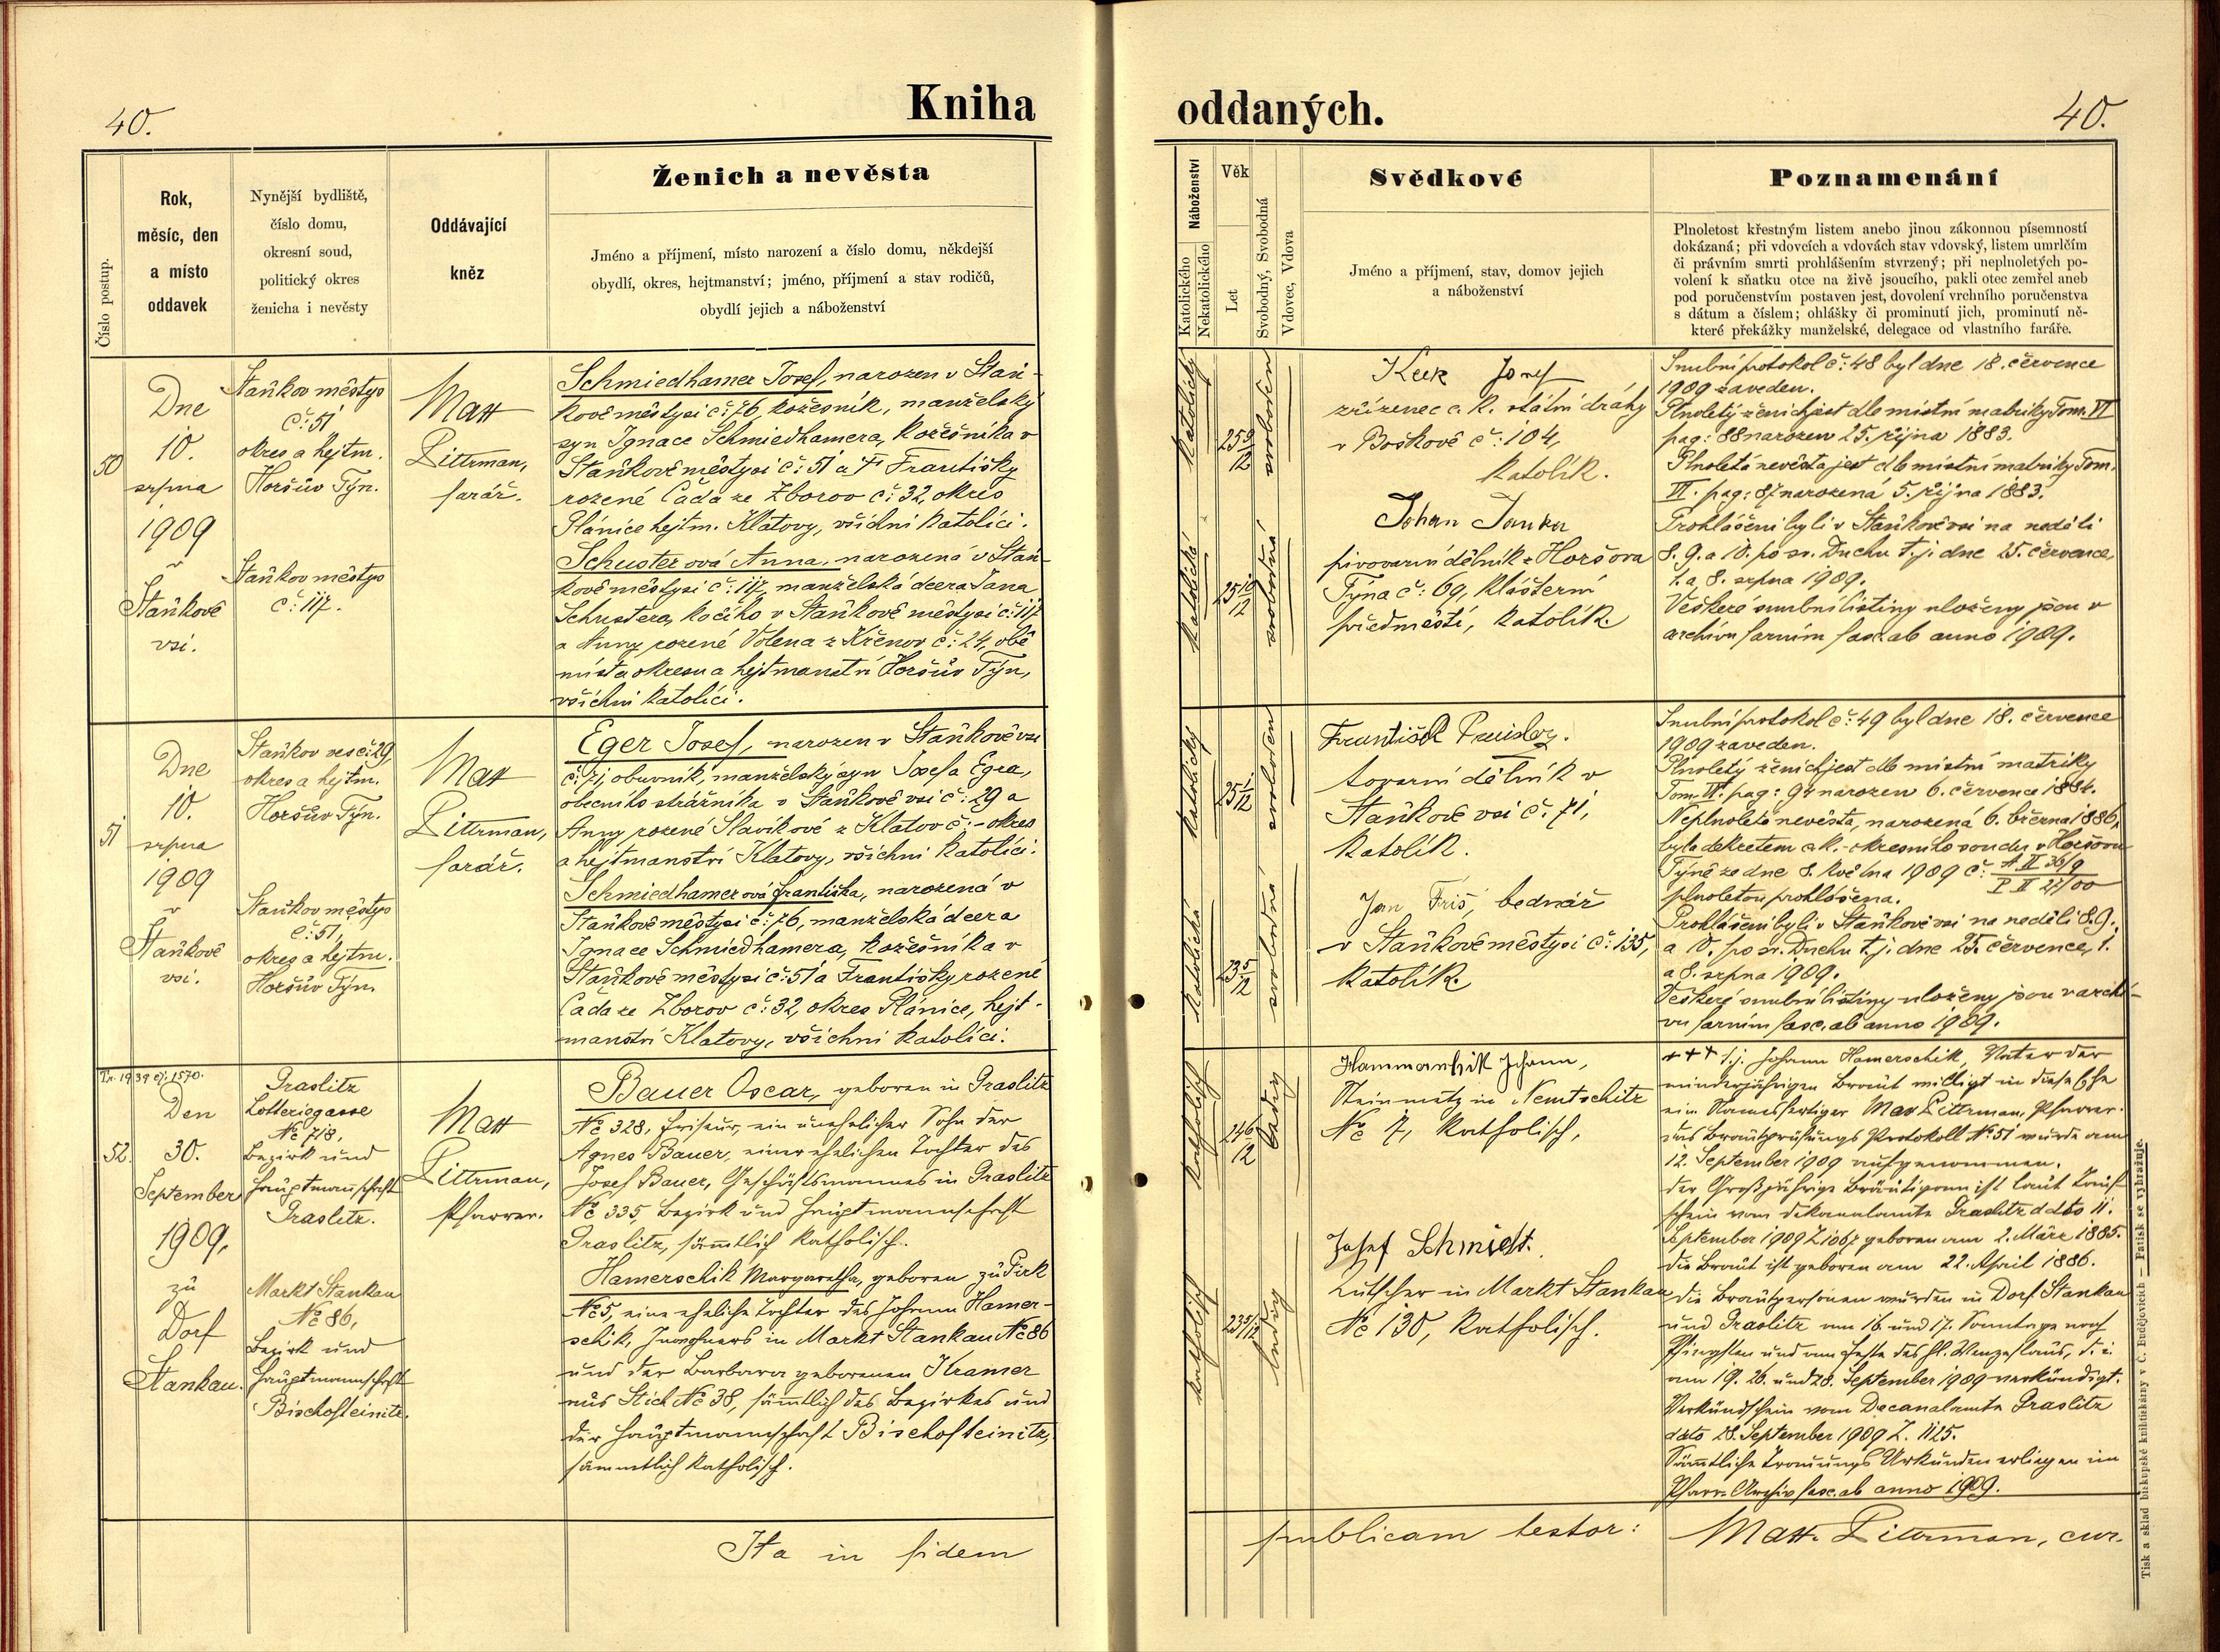 40.
Kniha
Číslo postup.
Rok,
měsíc, den
a místo
oddavek
Nynější bydliště,
číslo domu,
okresní soud,
politický okres
ženicha i nevěsty
Oddávající
kněz
Ženich a nevěsta
Jméno a příjmení, místo narození a číslo domu, někdejší
obydlí, okres, hejtmanství; jméno, příjmení a stav rodičů,
obydlí jejich a náboženství
50
Dne
10.
srpna
1909
v
Staňkově
vsi.
Staňkov městys
č: 51
okres a hejtm.
Horšův Týn.
Staňkov městys
č: 117.
Matt
Littrman,
farář.
Schmiedhamer Josef, narozen v Staň-
kově městysi č: 76, kožešník, manželský
syn Ignace Schmiedhamera, kožešníka v
Staňkově městysi č: 51 a Františky
rozené Čada ze Zborov č: 32, okres
Plánice hejtm. Klatovy, všichni katolíci.
Schusterová Anna, narozená v Staň-
kově městysi č: 117, manželská dcera Jana
Schustera, kočího v Staňkově městysi č: 117
a Anny rozené Volena z Křenov č: 24, obě
místa okresu a hejtmanství Horšův Týn,
všichni katolíci.
51
Dne
10.
srpna
1909
v
Staňkově
vsi.
Staňkov ves č: 29,
okres a hejtm.
Horšův Týn.
Staňkov městys
č: 51,
okres a hejtm.
Horšův Týn.
Matt
Littrman,
farář.
Eger Josef, narozen v Staňkově vsi
č: 71, obuvník, manželský syn Josefa Egra,
obecního strážníka v Staňkově vsi č: 29 a
Anny rozené Slavíkové z Klatov č: - okres
a hejtmanství Klatovy, všichni katolíci.
Schmiedhamerová Františka, narozená v
Staňkově městysi č: 76, manželská dcera
Ignace Schmiedhamera, kožešníka v
Staňkově městysi č: 51 a Františky rozené
Čada ze Zborov č: 32, okres Plánice, hejt-
manství Klatovy, všichni katolíci.
Tr. 1939 ej: 1570.
52.
Den
30.
September
1909,
zu
Dorf
Stankau.
Graslitz
Lotteriegasse
No 718,
Bezirk und
Hauptmannschaft
Graslitz.
Markt Stankau
No 86,
Bezirk und
Hauptmannschaft
Bischofteinitz.
Matt
Littrman,
Pfarrer.
Bauer Oscar, geboren in Graslitz
No 328, Friseur, ein unehelicher Sohn der
Agnes Bauer, einer ehelichen Tochter des
Josef Bauer, Geschäftsmannes in Graslitz
No 335, Bezirk und Hauptmannschaft
Graslitz, sämmtlich katholisch.
Hamerschik Margaretha, geboren zu Pirk
No 5, eine eheliche Tochter des Johann Hamer-
schik, Inwohners in Markt Stankau No 86
und der Barbara geborenen Kramer
aus Stich No 38, sämmtlich des Bezirkes und
der Hauptmannschaft Bischofteinitz,
sämmtlich katholisch.
Ita in fidem
oddaných.
40.
Náboženství
Katolického
Nekatolického
Věk
Let
Svobodný, Svobodná
Vdovec, Vdova
Svědkové
Jméno a příjmení, stav, domov jejich
a náboženství
Poznamenání
Plnoletost křestným listem anebo jinou zákonnou písemností
dokázaná; při vdovcích a vdovách stav vdovský, listem umrlčím
či právním smrti prohlášením stvrzený; při neplnoletých po-
volení k sňatku otce na živě jsoucího, pakli otec zemřel aneb
pod poručenstvím postaven jest, dovolení vrchního poručenstva
s dátum a číslem; ohlášky či prominutí jich, prominutí ně-
které překážky manželské, delegace od vlastního faráře.
katolický
25 9/12
svoboden
katolická
25 10/12
svobodná
Josef
zřízenec c. k. státní dráhy
v Boškově č: 104,
katolík.
Johan Janka
pivovarní dělník z Horšova
Týna č: 69, klášterní
předměstí, katolík.
Snubní protokol č: 48 byl dne 18. července
1909 zaveden.
Plnoletý ženich jest dle místní matriky Tom. VI
pag: 88 narozen 25. října 1883.
Plnoletá nevěsta jest dle místní matriky Tom.
VI. pag: 87 narozená 5. října 1883.
Prohlášeni byli v Staňkově vsi na neděli
8. 9. a 10. po sv. Duchu t. j. dne 25. července,
1. a 8. srpna 1909.
Veškeré snubní listiny uloženy jsou v
archivu farním fasc. ab anno 1909.
katolický
25 1/12
svoboden
katolická
23 5/12
svobodná
František
tovarní dělník v
Staňkově vsi č: 71,
katolík.
Jan Friš, bednář
v Staňkově městysi č: 135,
katolík.
Snubní protokol č: 49 byl dne 18. července
1909 zaveden.
Plnoletý ženich jest dle místní matriky
Tom. VI. pag: 94 narozen 6. července 1884.
Neplnoletá nevěsta, narozená 6. března 1886,
byla dekretem c. k. okresního soudu v Horšovu
Týně ze dne 8. května 1909 č: A II 36/9
P II 27/00
plnoletou prohlášena.
Prohlášeni byli v Staňkově vsi na neděli 8. 9.,
a 10. po sv. Duchu t. j. dne 25. července, 1.
a 8. srpna 1909.
Veškeré snubní listiny uloženy jsou v archi-
vu farním fasc. ab anno 1909.
katholisch
24 6/12
ledig
katholisch
23 5/12
ledig
Hammerschik Johann,
Steinmetz in Nemtschitz
No 7, katholisch,
Josef Schmiedt.
Kutscher in Markt Stankau
No 130, katholisch.
+++ d.j. Johann Hamerschik, Vater der
minderjährigen Braut willigt in diese Ehe
ein Namensfertiger Mat. Littrman, Pfarrer.
Das Brautprüfungs Protokoll No 51 wurde am
12. September 1909 aufgenommen.
Der Großjährige Bräutigam ist laut Tauf
schein vom Dekanalamte Graslitz ddto 11.
September 1909 Z 1067 geboren am 2. März 1885.
Die Braut ist geboren am 22. April 1886.
Die Brautpersonen wurden in Dorf Stankau
und Graslitz am 16. und 17. Sonntage nach
Pfingsten und am Feste des hl. Wenzeslaus, d. i.
am 19. 26. und 28. September 1909 verkündigt.
Verkündschein vom Decanalamte Graslitz
ddto 28. September 1909 Z. 1125.
Sämmtliche Trauungs Urkunden erliegen im
Pfarr-Archiv fasc. ab anno 1909.
publicam testor:
Matt. Littrman, cur.
Tisk a sklad biskupské knihtiskárny v Č. Budějovicích. — Patisk se vyhražuje.